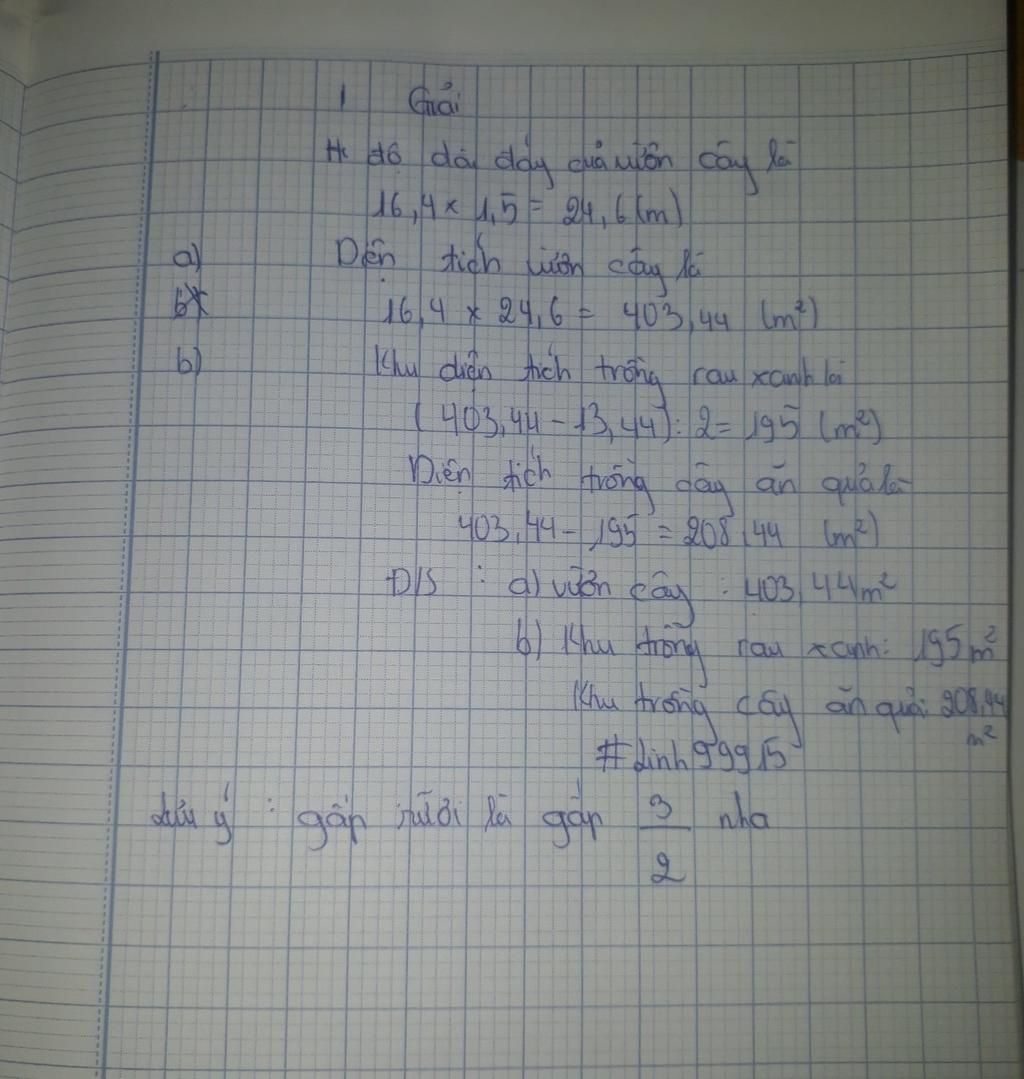 1 Giải
độ dài đáy của vườn cây là
16,4 x 1,5 = 24,6 (m)
a) Diện tích vườn cây là
16,4 x 24,6 = 403,44 (m²)
b) Khu diện tích trồng rau xanh là
(403,44 - 13,44) : 2 = 195 (m²)
Diện tích trồng cây ăn quả là
403,44 - 195 = 208,44 (m²)
Đ/S : a) vườn cây : 403,44 m²
b) Khu trồng rau xanh: 195 m²
Khu trồng cây ăn quả: 208,44
m²
#Linh99915
Lưu ý : gấp rưỡi là gấp 3/2 nha